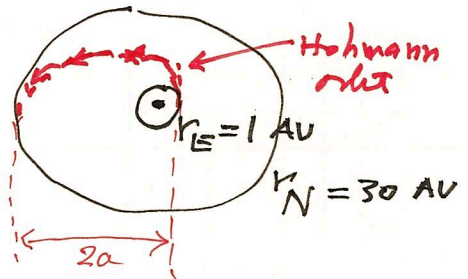 Hohmann
orbit
r_E = 1 AU
r_N = 30 AU
2a